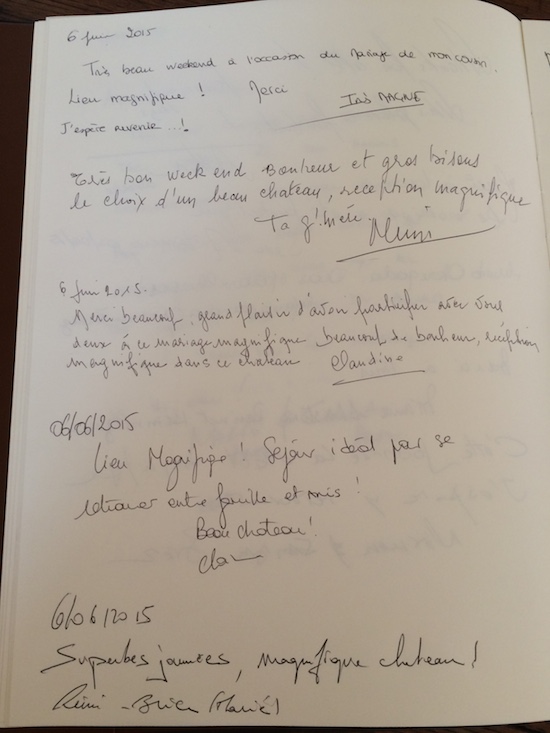 6 juin 2015
Très beau weekend à l'occasion du Mariage de mon cousin.
Lieu magnifique ! Merci
Inès MAGNE
J'espère revenir...!
Très bon week end Bonheur et gros bisous
le choix d'un beau chateau, reception magnifique
Ta
6 juin 2015.
Merci beaucoup, grand plaisir d'avoir participer avec vous
deux à ce mariage magnifique beaucoup de bonheur, réception
magnifique dans ce chateau Claudine
06/06/2015
Lieu Magnifique ! Séjour idéal pour se
retrouver entre famille et amis !
Beau chateau !
6/06/2015
Superbes journées, magnifique chateau !
Rémi - Brice